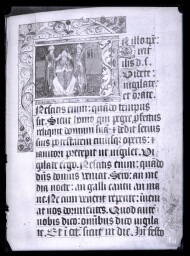 N illo tp̄r:
Dixit
ihs d. s.
Videte:
vigilate
et orate.
Nescitis enim: quando tempus
sit. Sicut homo qui pegre pfectus
reliquit domum suā: ⁊ dedit servis
suis potestatem cuiusq; operis:
ianitori precepit ut vigilet. Vi-
gilate ergo. Nescitis enim: quando
dn̄s domus veniat. Sero: an me
dia nocte: an galli cantu an ma
ne. Ne cum venerit repente: inveni
at vos dormientes. Quod autē
vobis dico: omnibus dico vigila
te.